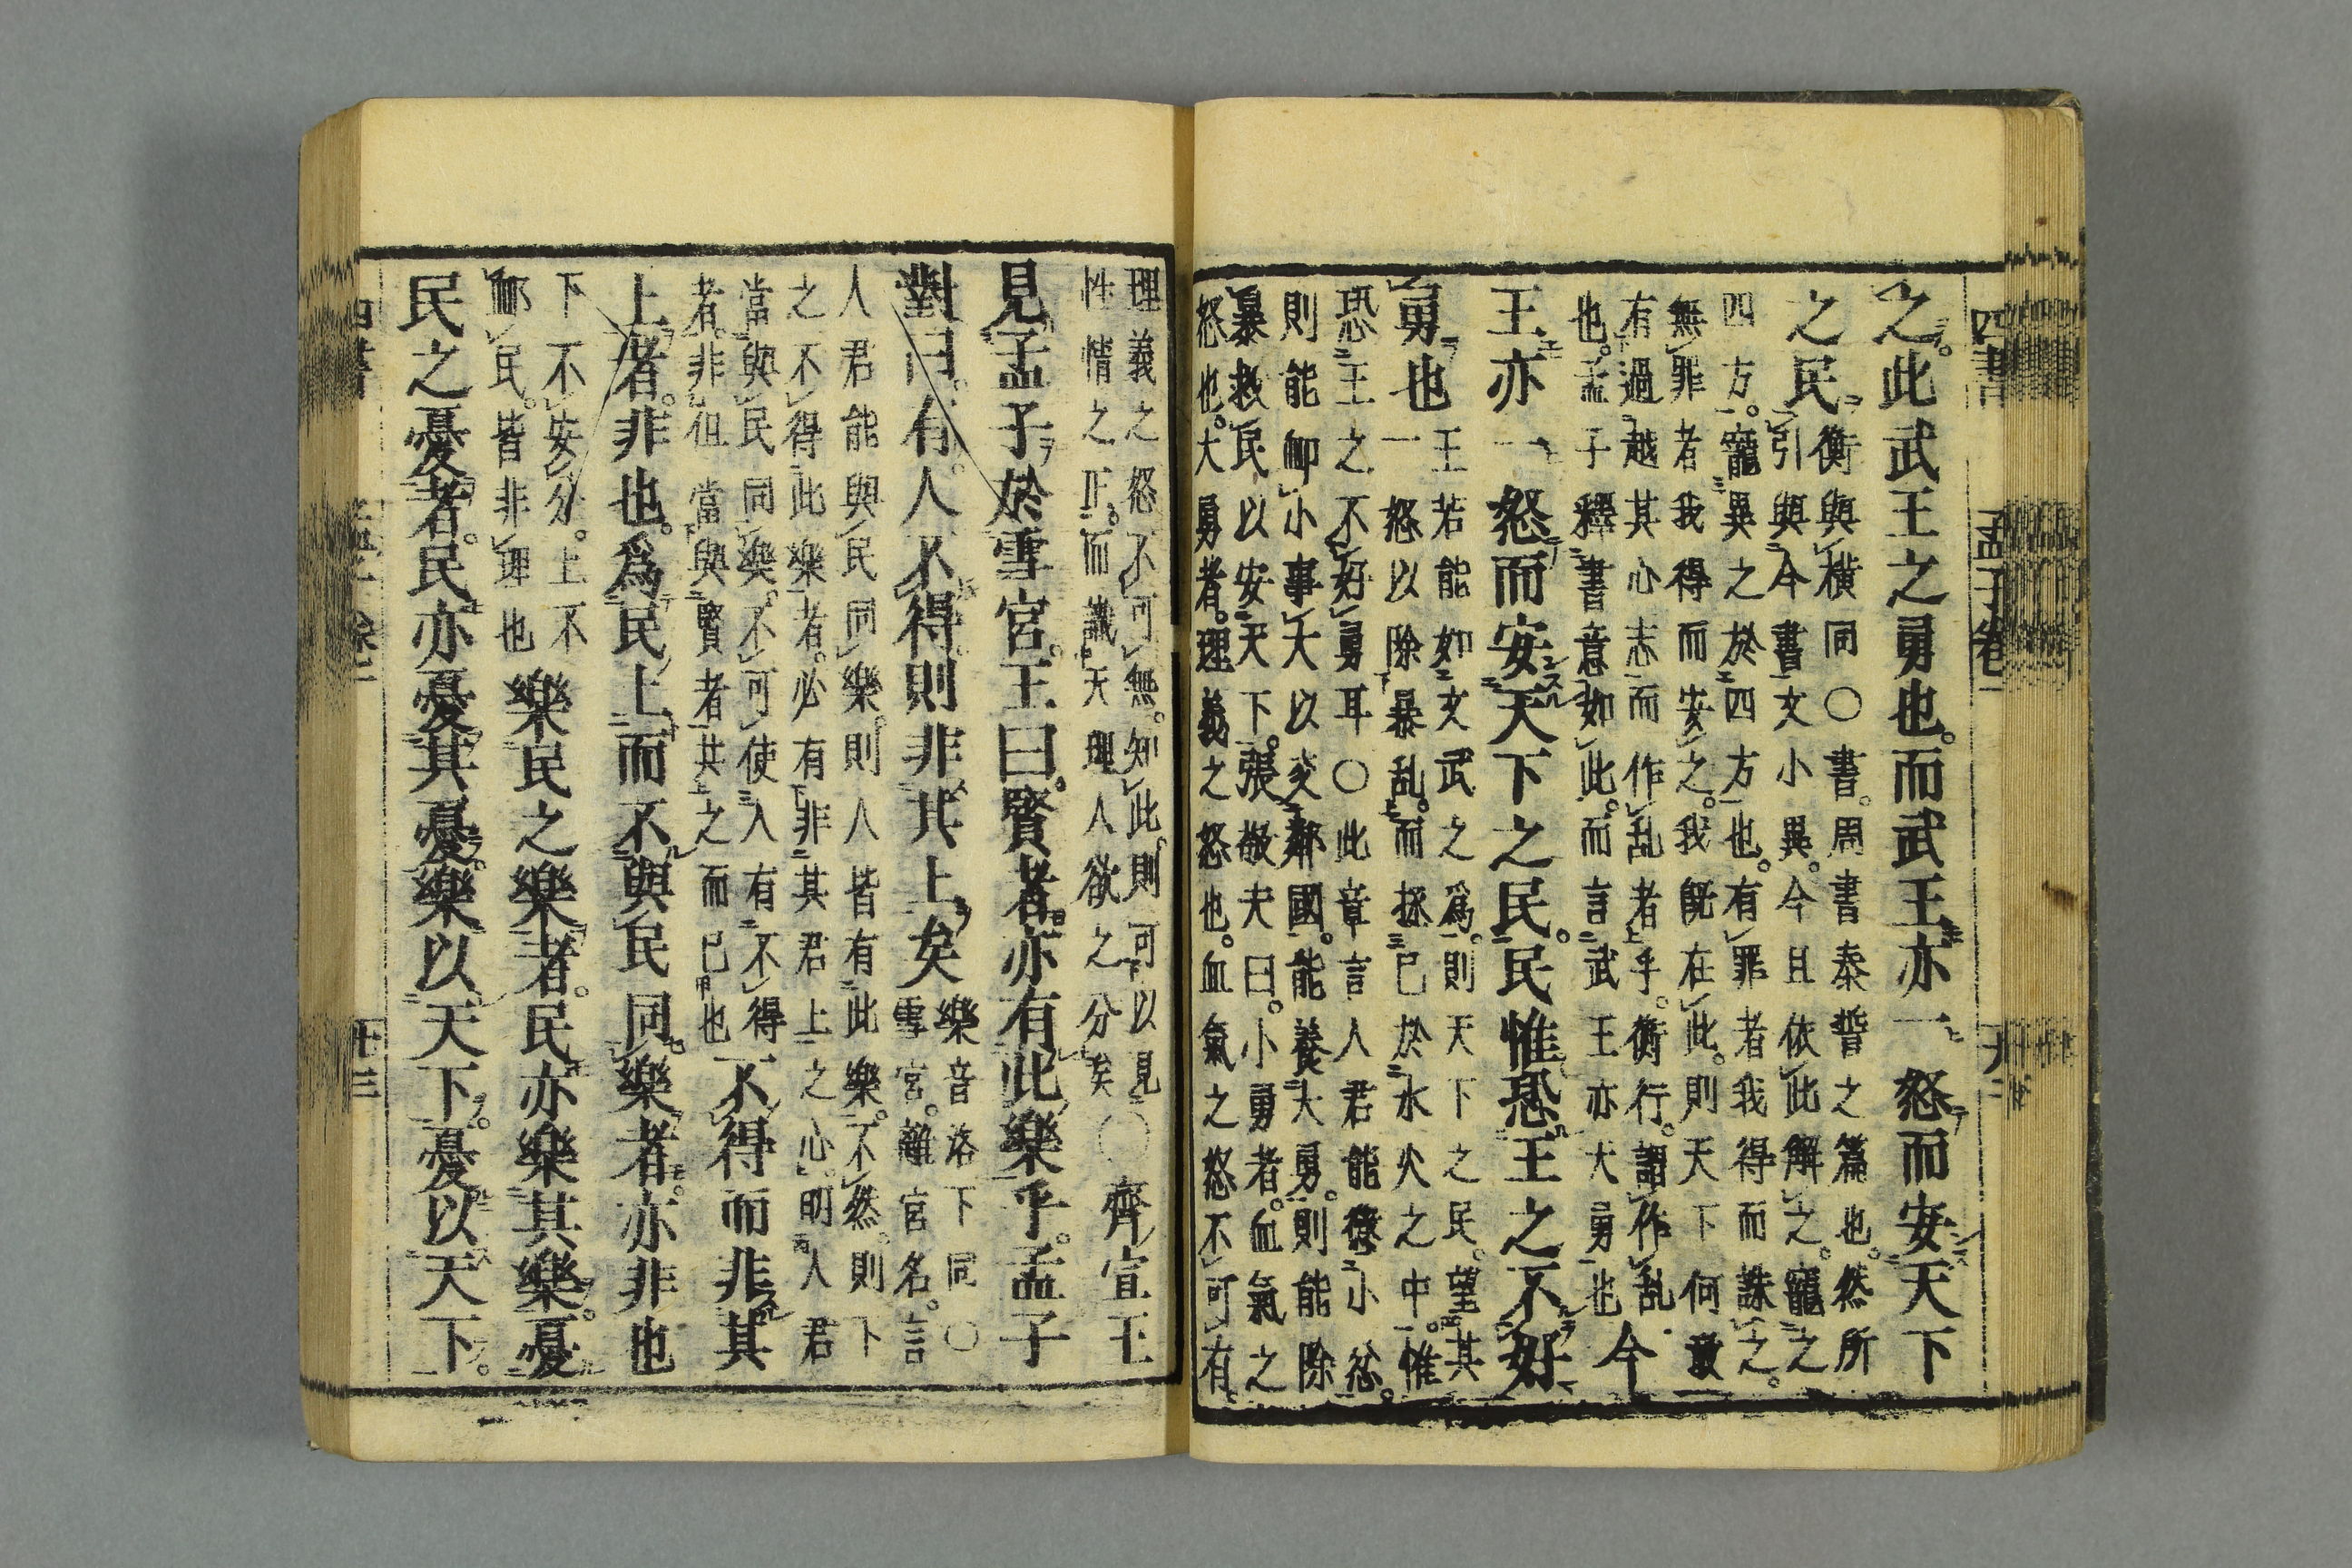 四書 孟子卷一
之。此武王之勇也。而武王亦一怒而安天下
之民。
衡與橫同○書。周書泰誓之篇也。然所
引與今書文小異。今且依此解之。寵之
四方。寵異之於四方也。有罪者我得而誅之。
無罪者我得而安之。我既在此。則天下何敢
有過越其心志而作乱者乎。衡行。謂作乱
也。孟子釋書意如此。而言武王亦大勇也
今
王亦一怒而安天下之民。民惟恐王之不好
勇也
王若能如文武之爲。則天下之民。望其
一怒以除暴乱。而拯己於水火之中。惟
恐王之不好勇耳○此章言人君能懲小忿。
則能卹小事大以交鄰國。能養大勇。則能除
暴救民以安天下。張敬夫曰。小勇者。血氣之
怒也。大勇者。理義之怒也。血氣之怒不可有。
理義之怒不可無。知此。則可以見
性情之正。而識天理人欲之分矣
○齊宣王
見孟子於雪宮。王曰。賢者。亦有此樂乎。孟子
對曰。有。人不得則非其上矣
樂音洛下同○
雪宮。離宮名。言
人君能與民同樂。則人皆有此樂。不然。則下
之不得此樂者。必有非其君上之心。明人君
當與民同樂。不可使人有不得
者。非但當與賢者共之而已也
不得而非其
上者。非也。爲民上而不與民同樂者。亦非也
下不安分。上不
卹民。皆非理也
樂民之樂者。民亦樂其樂。憂
民之憂者。民亦憂其憂。樂以天下。憂以天下。
四書
十三